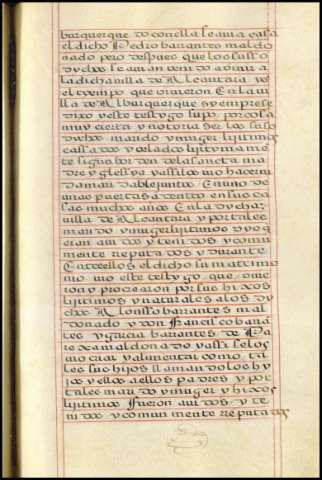 burquerque do con ella se avia casa
el dicho Pedro barrantes maldo
nado pero despues que los suso
dichos se avian venido a bivir a
la dicha villa de Alcantara y os
el tyempo que vivieron En la vi
lla de Alburquerque syempre se
dixo y este testygo supo por cosa
muy cierta y notoria ser los suso
dichos marido y muger ligitimos
cassados y velados ligitymame
te sigun horden de la sancta ma
dre yglessya y assi los vio hacer vi
da maridable juntos En uno de
unas puertas adentro en sus ca
sas muchos años En la dycha
villa de Alcantara y por tales
marido y muger ligitimos vyo q
eran avidos y tenidos y comun
mente rreputados y durante
Entrellos el dicho su matrimo
nio vio este testygo que ovie
ron y procrearon por sus hixos
ligitimos y naturales a los dy
chos Alonsso barrantes mal
donado y don Francisco barran
tes y garcia barrantes de Pare
xa maldonado y assi se los
vio criar y alimentar como ta
les sus hijos llamandolos hy
jos y ellos a ellos padres y por
tales marido y muger y hixos
ligitimos Fueron avidos y te
nidos y comunmente rreputados